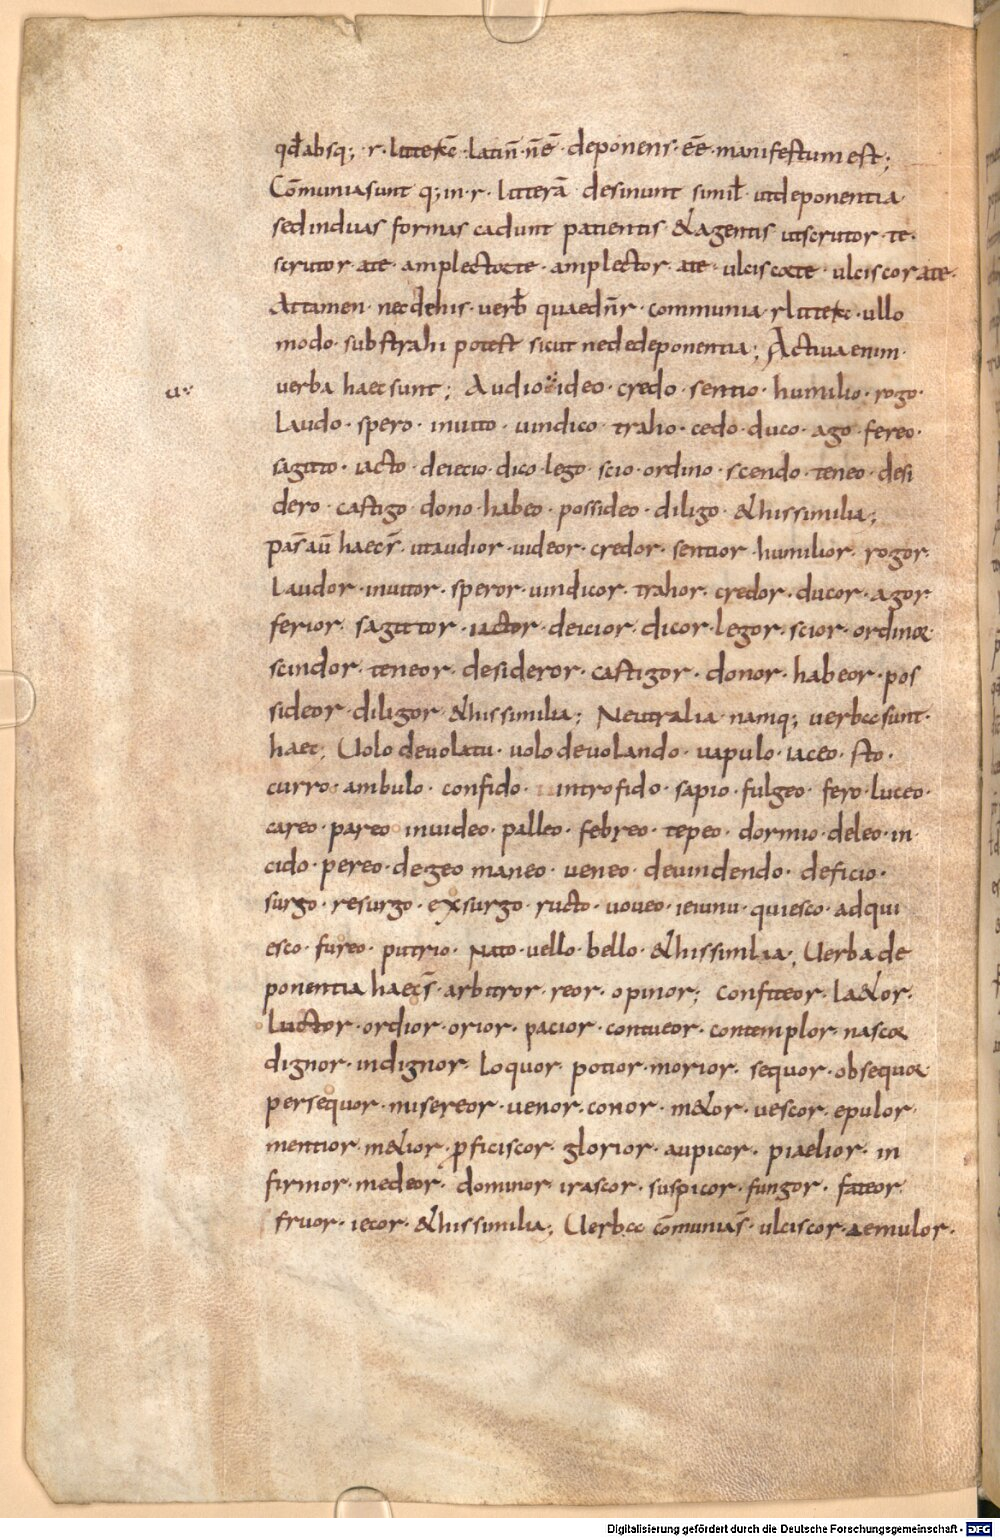 qđ absq; · r · littera · latiñ · ñ ē · deponens · eē · manifestum est;
Cōmunia sunt q; in · r · litterā desinunt simił ut deponentia ·
sed in duas formas cadunt patientis & agentis ut scrutor · te ·
scrutor · a te · amplector te · amplector · a te · ulciscor te · ulciscor a te ·
Attamen · nec de his · verƀ quae dnr̄ · communia · r littera · ullo
modo · subſtrahi potest sicut nec de deponentia; Activa enim ·
u ·.· verba haec sunt; Audio video · credo · sentio · humilio · rogo ·
Laudo · spero · inuito · uindico · traho · cedo · duco · ago · fereo ·
sagitto · iacto · deiecio · dico · lego · scio · ordino · scendo · teneo · desi
dero · castigo · dono · habeo · possideo · diligo · & his similia;
Pas̄ aū haec s̄ · ut audior · uideor · credor · sentior · humilior · rogor ·
Laudor · inuitor · speror · uindicor · trahor · credor · ducor · agor ·
ferior · sagittor · iactor · deicior · dicor · legor · scior · ordinor
scindor · teneor · desideror · castigor · donor · habeor · pos
sideor · diligor · & his similia; Neutralia namq; uerba sunt ·
haec; Uolo de uolatu · uolo de uolando · uapulo · iaceo · sto ·
curro · ambulo · confido · introfido · sapio · fulgeo · fero · luceo ·
careo · pareo inuideo · palleo · febreo · tepeo · dormio · deleo · in
cido · pereo · degeo maneo · ueneo · deuindendo · deficio ·
surgo · resurgo · exsurgo · ructo · uoueo · ieiunu · quiesco · adqui
esco · fureo · putrio · Nato · uello · bello · & his similia; Uerba de
ponentia haec s̄ · arbitror · reor · opinor; confiteor · la&or ·
Luctor · ordior · orior · pacior · contueor · contemplor · nascor
dignor · indignor · Loquor · potior · morior · sequor · obsequor
persequor · misereor · uenor · conor · m&or · uescor · epulor ·
mentior · m&ior · pficiscor · glorior · aupicor · piaelior · in
firmor · medeor · dominor · irascor · suspicor · fungor · fateor ·
fruor · iecor · & his similia; Uerba cōmunia s̄ · ulciscor · aemulor ·
Digitalisierung gefördert durch die Deutsche Forschungsgemeinschaft - DFG